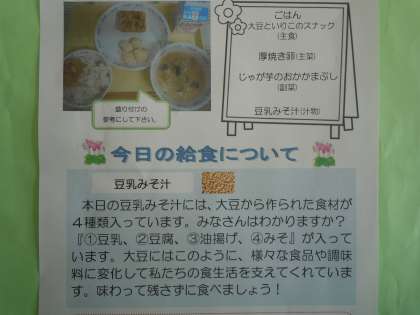 ごはん
大豆といりこのスナック
(主食)
厚焼き卵(主菜)
じゃが芋のおかかまぶし
(副菜)
豆乳みそ汁(汁物)
盛り付けの
参考にして下さい。
今日の給食について
豆乳みそ汁
本日の豆乳みそ汁には、大豆から作られた食材が
4種類入っています。みなさんはわかりますか？
『①豆乳、②豆腐、③油揚げ、④みそ』が入って
います。大豆にはこのように、様々な食品や調味
料に変化して私たちの食生活を支えてくれていま
す。味わって残さずに食べましょう！